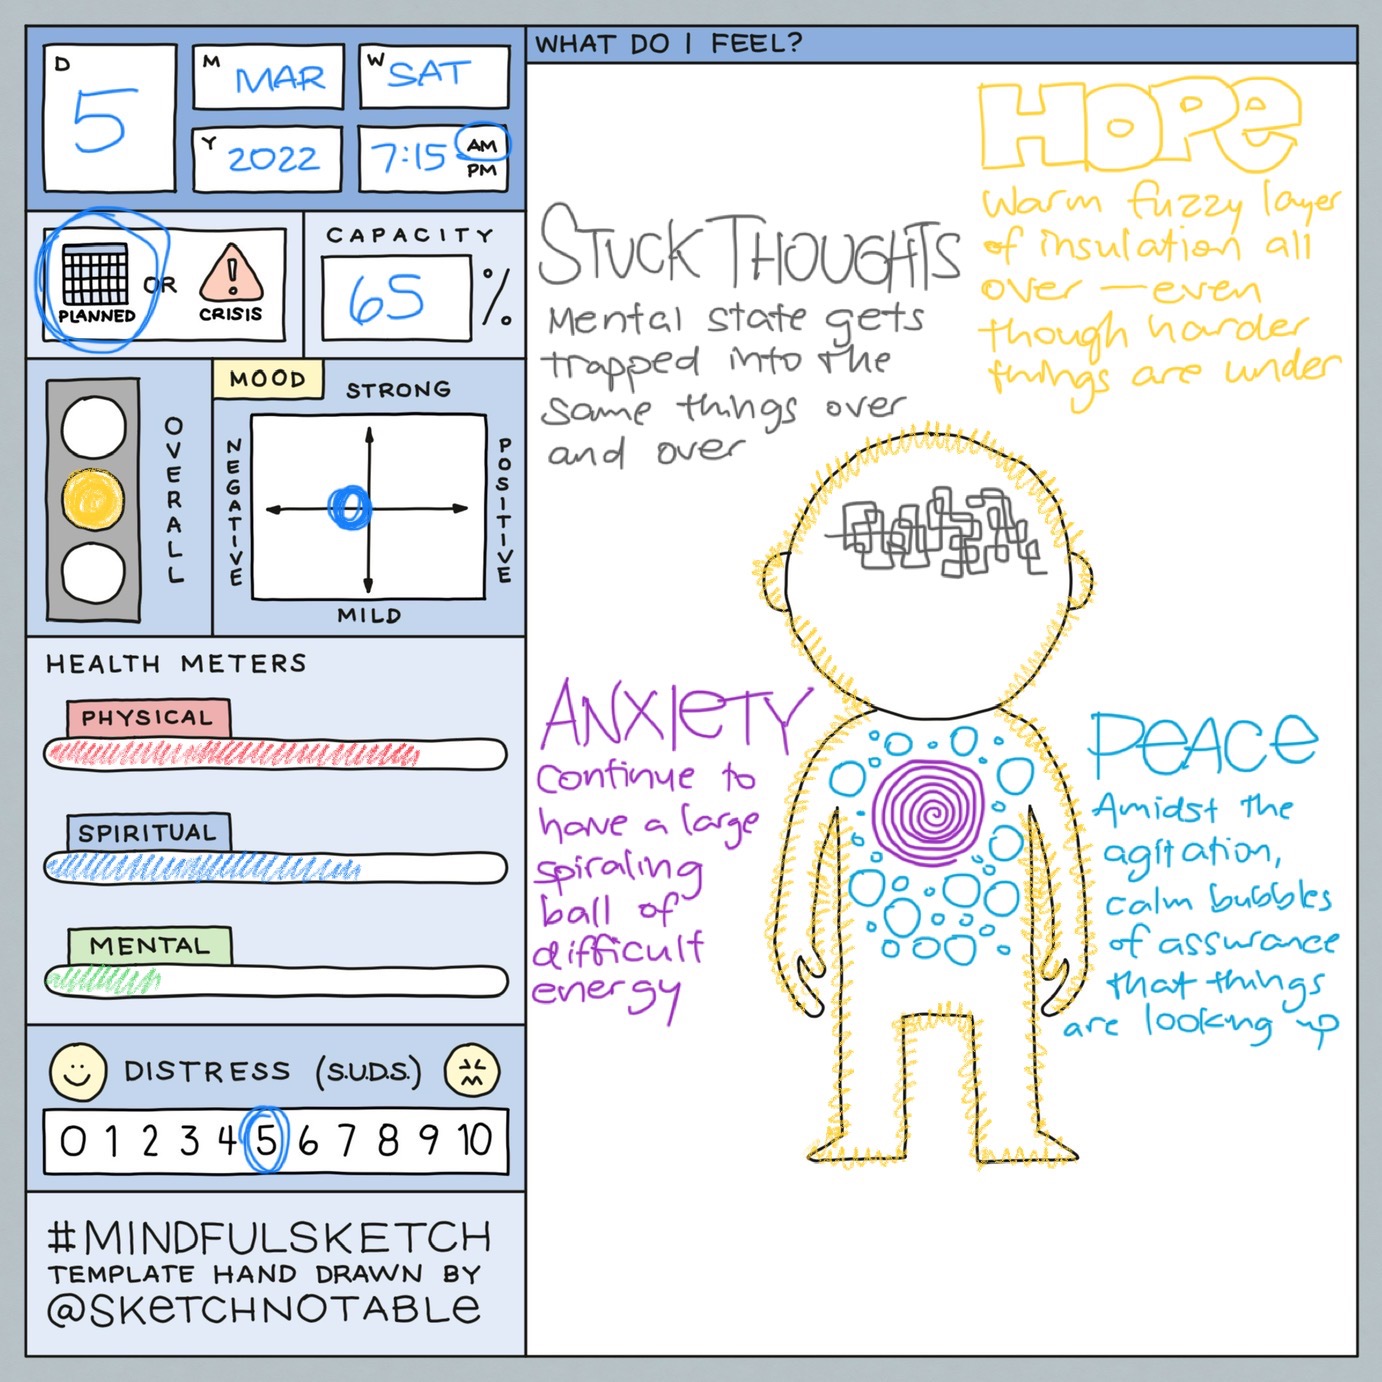 D
5
M MAR
W SAT
Y 2022
7:15 AM
PM
PLANNED OR CRISIS
CAPACITY
65 %
OVERALL
MOOD
STRONG
NEGATIVE
POSITIVE
MILD
HEALTH METERS
PHYSICAL
SPIRITUAL
MENTAL
DISTRESS (S.U.D.S.)
0 1 2 3 4 5 6 7 8 9 10
#MINDFULSKETCH
TEMPLATE HAND DRAWN BY
@SKETCHNOTABLE
WHAT DO I FEEL?
HOPE
Warm fuzzy layer
of insulation all
over — even
though harder
things are under
STUCK THOUGHTS
Mental state gets
trapped into the
same things over
and over
ANXIETY
Continue to
have a large
spiraling
ball of
difficult
energy
PEACE
Amidst the
agitation,
calm bubbles
of assurance
that things
are looking up